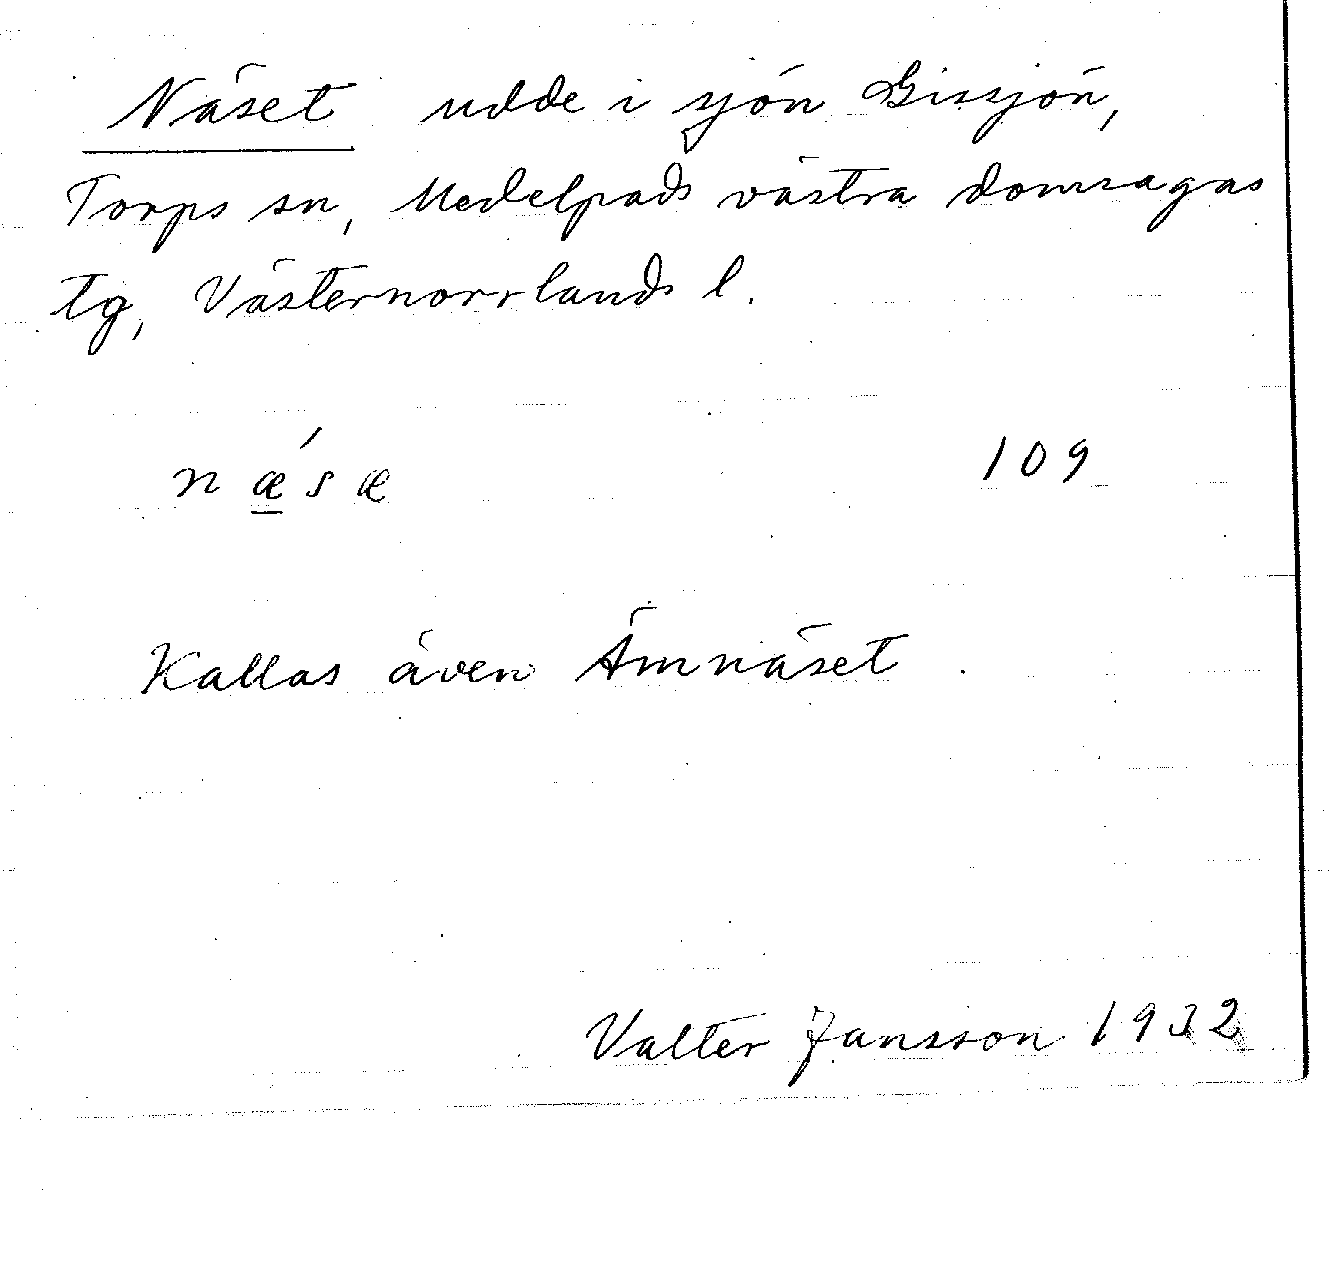 Näset udde i sjön Gissjön,
Torps sn, Medelpads västra domsagas
tg, Västernorrlands l.
nǽ̲sæ 109
Kallas även Ämnäset.
Valter Jansson 1932